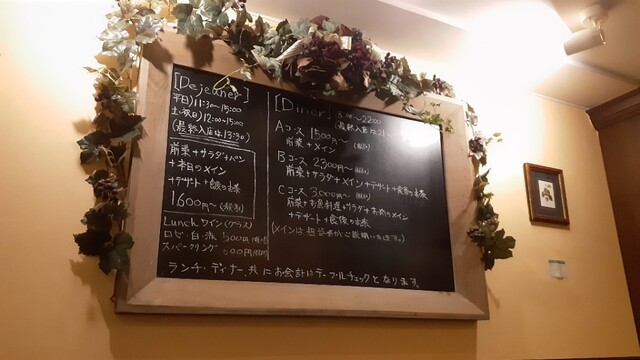 [Dejeuner]
平日) 11:30〜15:00
土・祝日) 12:00〜15:00
(最終入店は13:30)
前菜+サラダ+パン
+本日のメイン
+デザート+食後のお茶
1600円〜(税別)
Lunch ワイン(グラス)
ロゼ・白・赤 500円(税別)
スパークリング 600円(税別)
[Diner]
Aコース 1500円〜
前菜+メイン (税別)
Bコース 2300円〜 (税別)
前菜+サラダ+メイン+デザート+食後のお茶
Cコース 3,000円〜 (税別)
前菜+お魚料理+サラダ+お肉のメイン
+デザート+食後のお茶
(メインは担当者がご説明いたします。)
ランチ・ディナー、共にお会計はテーブルチェックとなります。